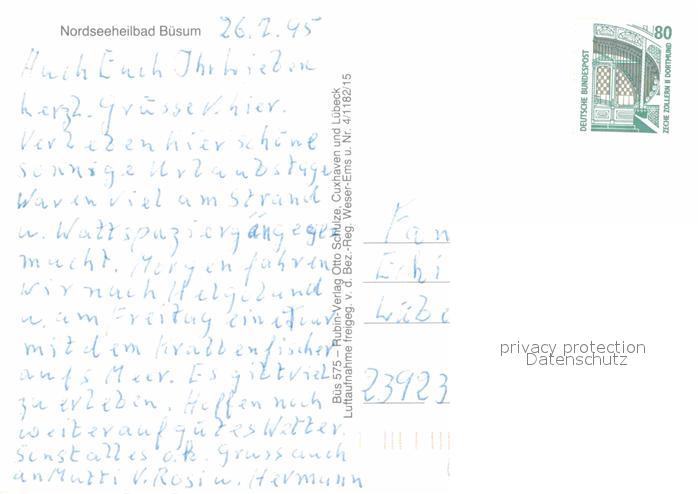 Nordseeheilbad Büsum 26.7.95
Auch Euch Ihr Lieben
herzl. Grüsse v. hier.
Verleben hier schöne
sonnige Urlaubstage
Waren viel am Strand
u. Wattspaziergänge ge
macht. Morgen fahren
wir nach Helgoland
u. am Freitag eine Tour
mit dem Krabbenfischer
aufs Meer. Es gibt viel
zu erleben. Hoffen noch
weiter auf gutes Wetter.
Sonst alles o.k. Gruss auch
an Mutti v. Rosi u. Hermann
Büs 575 – Rubin-Verlag Otto Schulze, Cuxhaven und Lübeck
Luftaufnahme freigeg. v. d. Bez.-Reg. Weser-Ems u. Nr. 4/1182/15
DEUTSCHE BUNDESPOST
80
ZECHE ZOLLERN II DORTMUND
Fam
Lübe
23923
privacy protection
Datenschutz